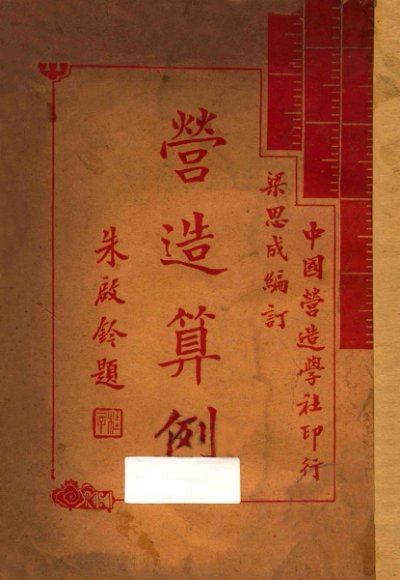 中國營造學社印行
梁思成編訂
營造算例
朱啟鈐題